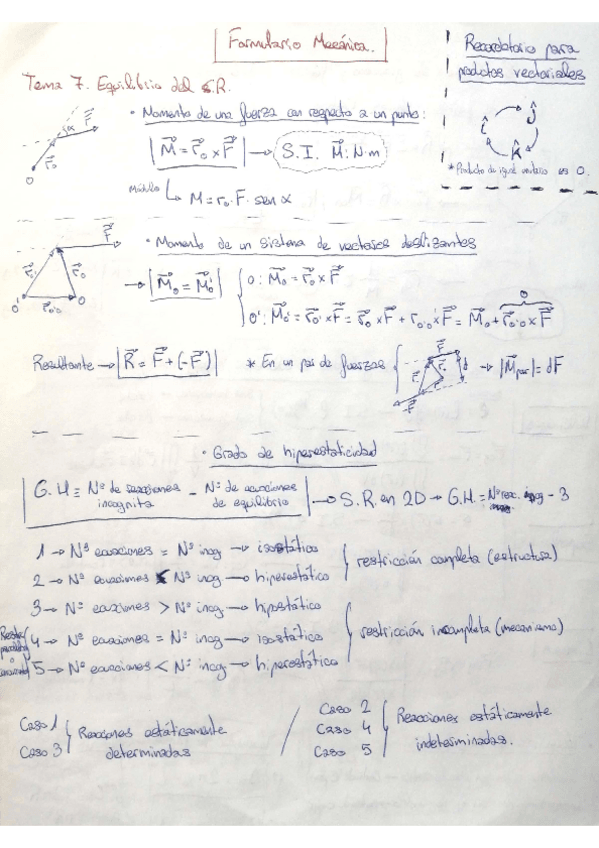 Formulario Mecánica.
Recordatorio para
productos vectoriales
î ĵ k̂
* Producto de igual unitario es 0.
Tema 7. Equilibrio del S.R.
· Momento de una fuerza con respecto a un punto:
F⃗ α r⃗₀ O
M⃗ = r⃗₀ x F⃗ → S.I. M⃗: N·m
módulo ↳ M = r₀ · F · sen α
· Momento de un sistema de vectores deslizantes
→ |M⃗₀ = M⃗₀'| { O: M⃗₀ = r⃗₀ x F⃗
O': M⃗₀' = r⃗₀' x F⃗ = r⃗₀ x F⃗ + r⃗₀'₀ x F⃗ = M⃗₀ + r⃗₀'₀ x F⃗
0
Resultante → |R⃗ = F⃗ + (-F⃗)| * En un par de fuerzas { → |M⃗par| = dF
· Grado de hiperestaticidad
G.H ≡ Nº de reacciones incognita - Nº de ecuaciones de equilibrio → S.R. en 2D → G.H. = Nº reac. incog - 3
1 → Nº ecuaciones = Nº incog → isostático
2 → Nº ecuaciones < Nº incog → hiperestático
restricción completa (estructura)
3 → Nº ecuaciones > Nº incog → hipostático
4 → Nº ecuaciones = Nº incog → isostático
5 → Nº ecuaciones < Nº incog → hiperestático
restricción incompleta (mecanismo)
Caso 1
Caso 3
Reacciones estáticamente
determinadas
/
Caso 2
Caso 4
Caso 5
Reacciones estáticamente
indeterminadas.